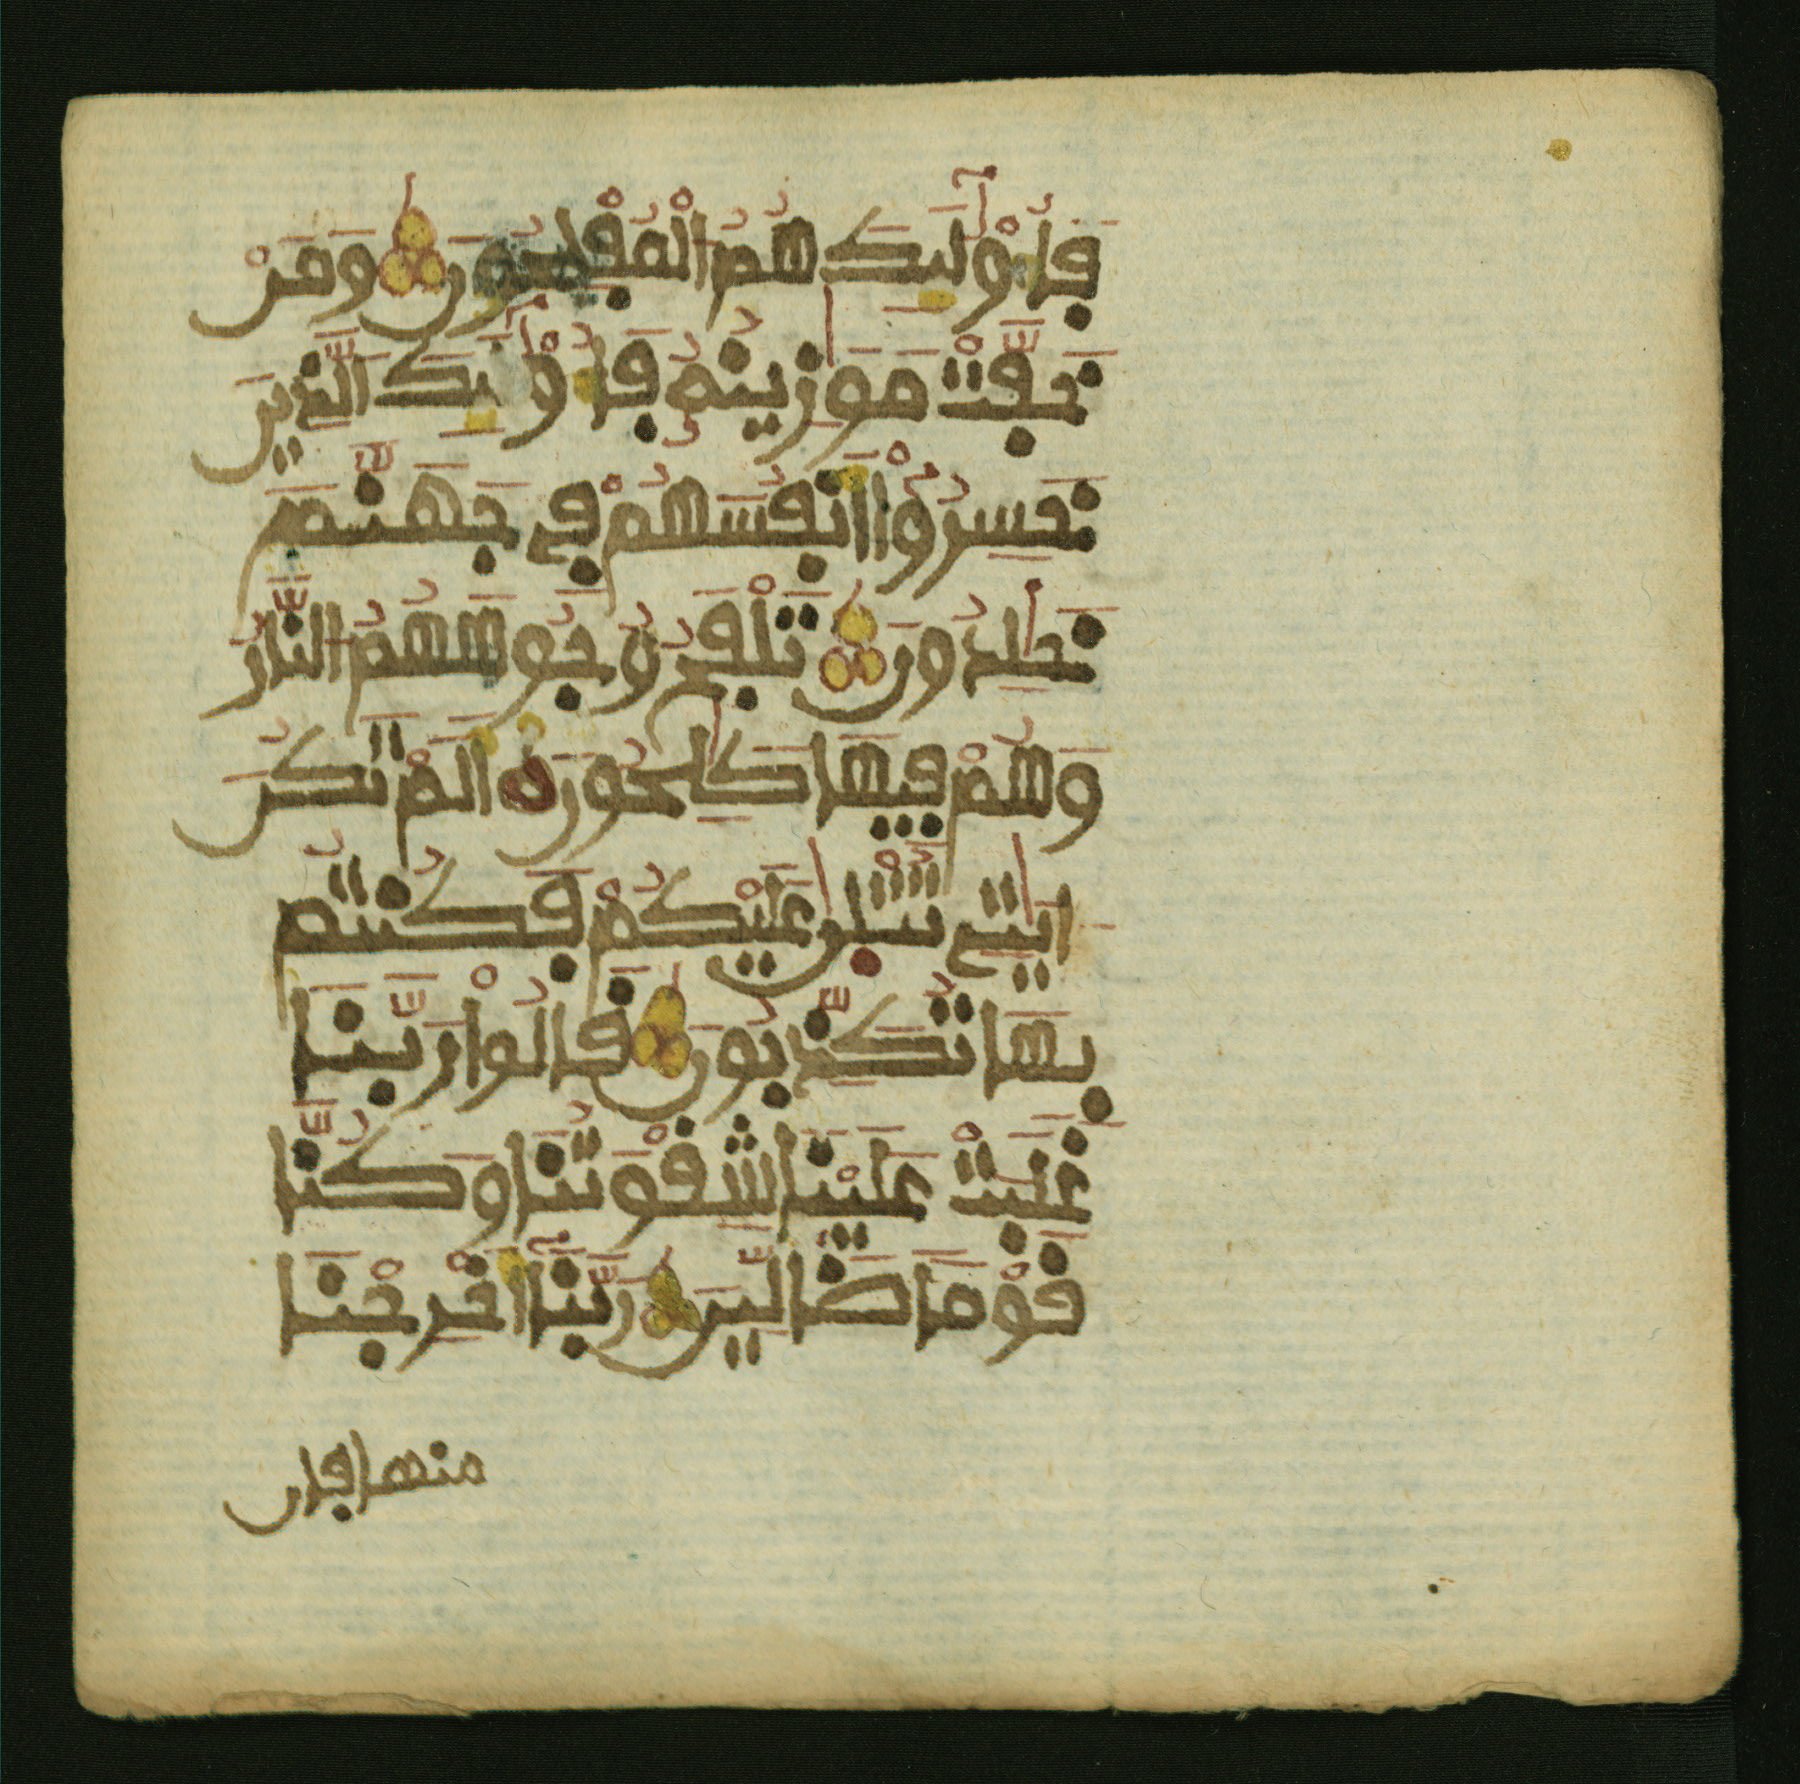 فَأُوْلَٰٓئِكَ هُمُ الْمُفْلِحُونَ وَمَنْ
خَفَّتْ مَوَٰزِينُهُ فَأُوْلَٰٓئِكَ الَّذِينَ
خَسِرُوٓاْ أَنفُسَهُمْ فِي جَهَنَّمَ
خَٰلِدُونَ تَلْفَحُ وُجُوهَهُمُ النَّارُ
وَهُمْ فِيهَا كَٰلِحُونَ أَلَمْ تَكُنَ
ءَايَٰتِي تُتْلَىٰ عَلَيْكُمْ فَكُنتُم
بِهَا تُكَذِّبُونَ قَالُواْ رَبَّنَا
غَلَبَتْ عَلَيْنَا شِقْوَتُنَا وَكُنَّا
قَوْمًا ضَالِّينَ رَبَّنَآ أَخْرِجْنَا
منها فإن